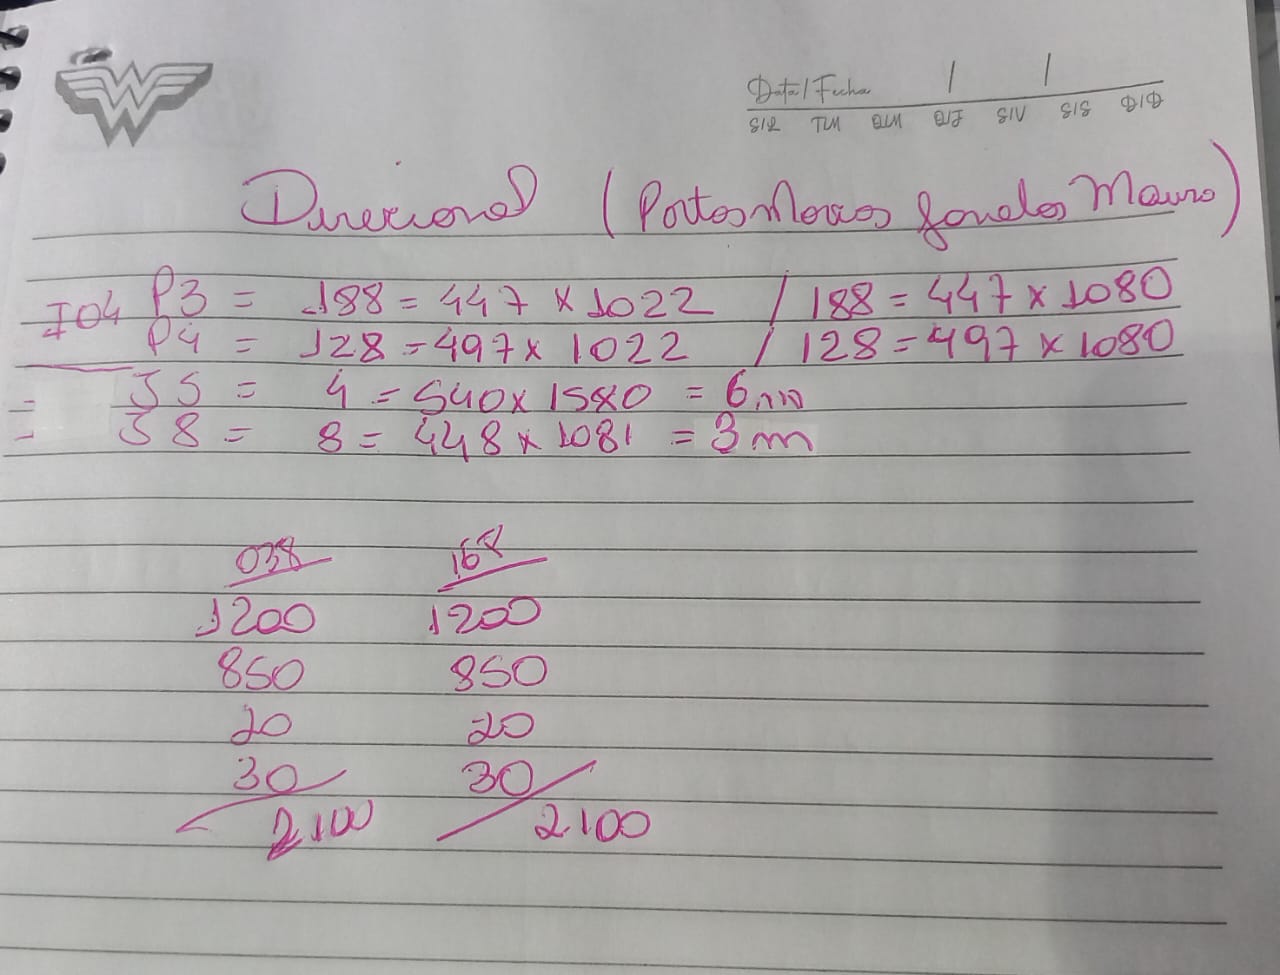 Data/Fecha / /
S/L T/M Q/M Q/J S/V S/S D/D
Direcional (Portas Marcos fondos Mauro)
I04 P3 = 188 = 447 x 1022 / 188 = 447 x 1080
P4 = 128 = 497 x 1022 / 128 = 497 x 1080
= J5 = 4 = 540 x 1580 = 6mm
= J8 = 8 = 448 x 1081 = 3m
038 168
1200 1200
850 850
20 20
30 30
2100 2100